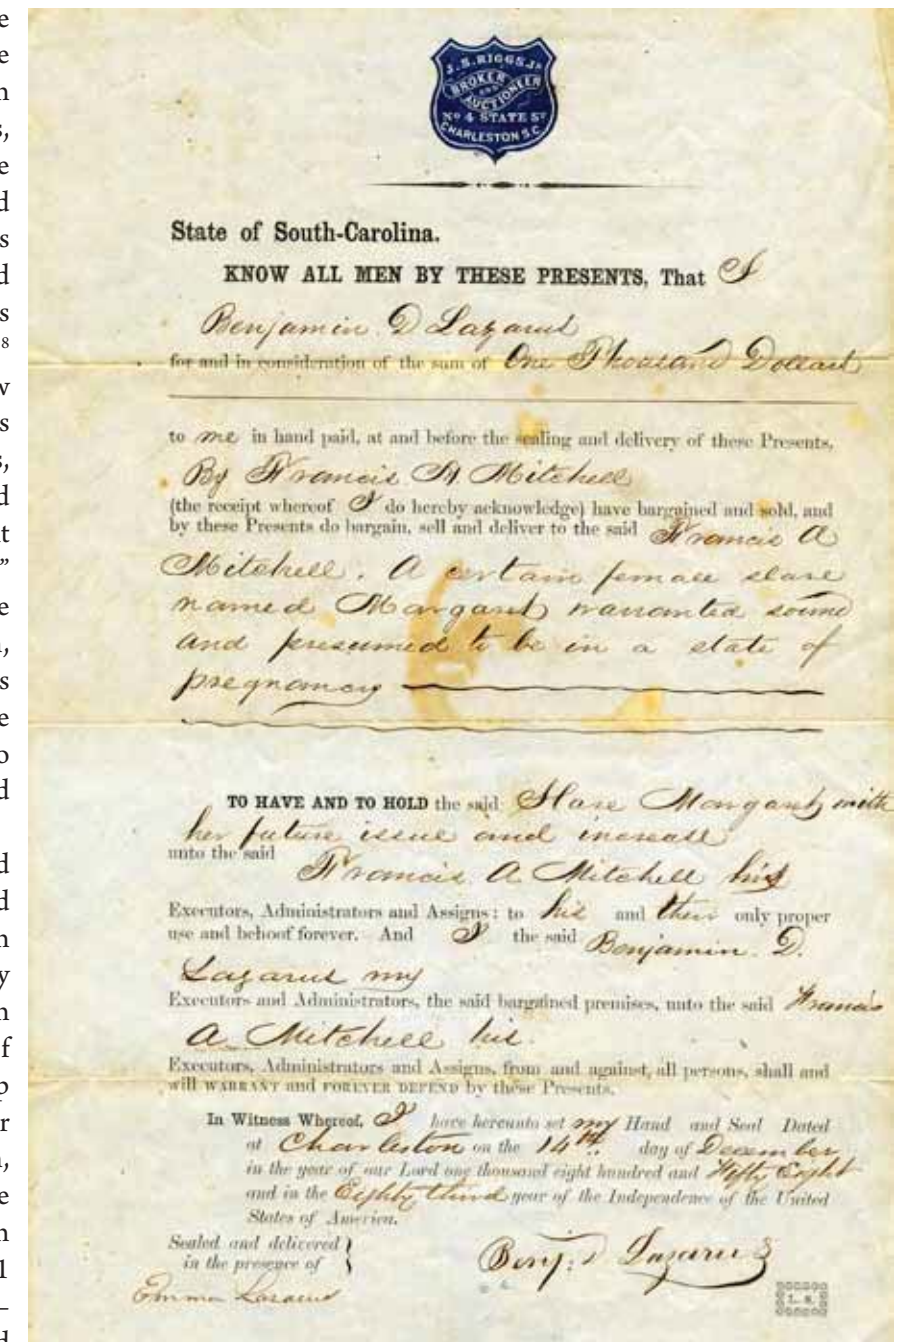 J. S. RIGGS JR
BROKER
AND
AUCTIONEER
No 4 STATE ST
CHARLESTON S.C.
State of South-Carolina.
KNOW ALL MEN BY THESE PRESENTS, That I
Benjamin D Lazarus
for and in consideration of the sum of One Thousand Dollars
to me in hand paid, at and before the sealing and delivery of these Presents,
By Francis A. Mitchell
(the receipt whereof I do hereby acknowledge) have bargained and sold, and
by these Presents do bargain, sell and deliver to the said Francis A
Mitchell. A certain female slave
named Margaret warranted sound
and presumed to be in a state of
pregnancy
TO HAVE AND TO HOLD the said Slave Margaret with
her future issue and increase
unto the said
Francis A Mitchell his
Executors, Administrators and Assigns: to his and their only proper
use and behoof forever. And I the said Benjamin. D.
Lazarus my
Executors and Administrators, the said bargained premises, unto the said Francis
A Mitchell his
Executors, Administrators and Assigns, from and against, all persons, shall and
will WARRANT and FOREVER DEFEND by these Presents.
In Witness Whereof, I have hereunto set my Hand and Seal Dated
at Charleston on the 14th day of December
in the year of our Lord one thousand eight hundred and Fifty Eight
and in the Eighty third year of the Independence of the United
States of America.
Sealed and delivered }
in the presence of
Benj. D Lazarus
Emma Lazarus
L. S.